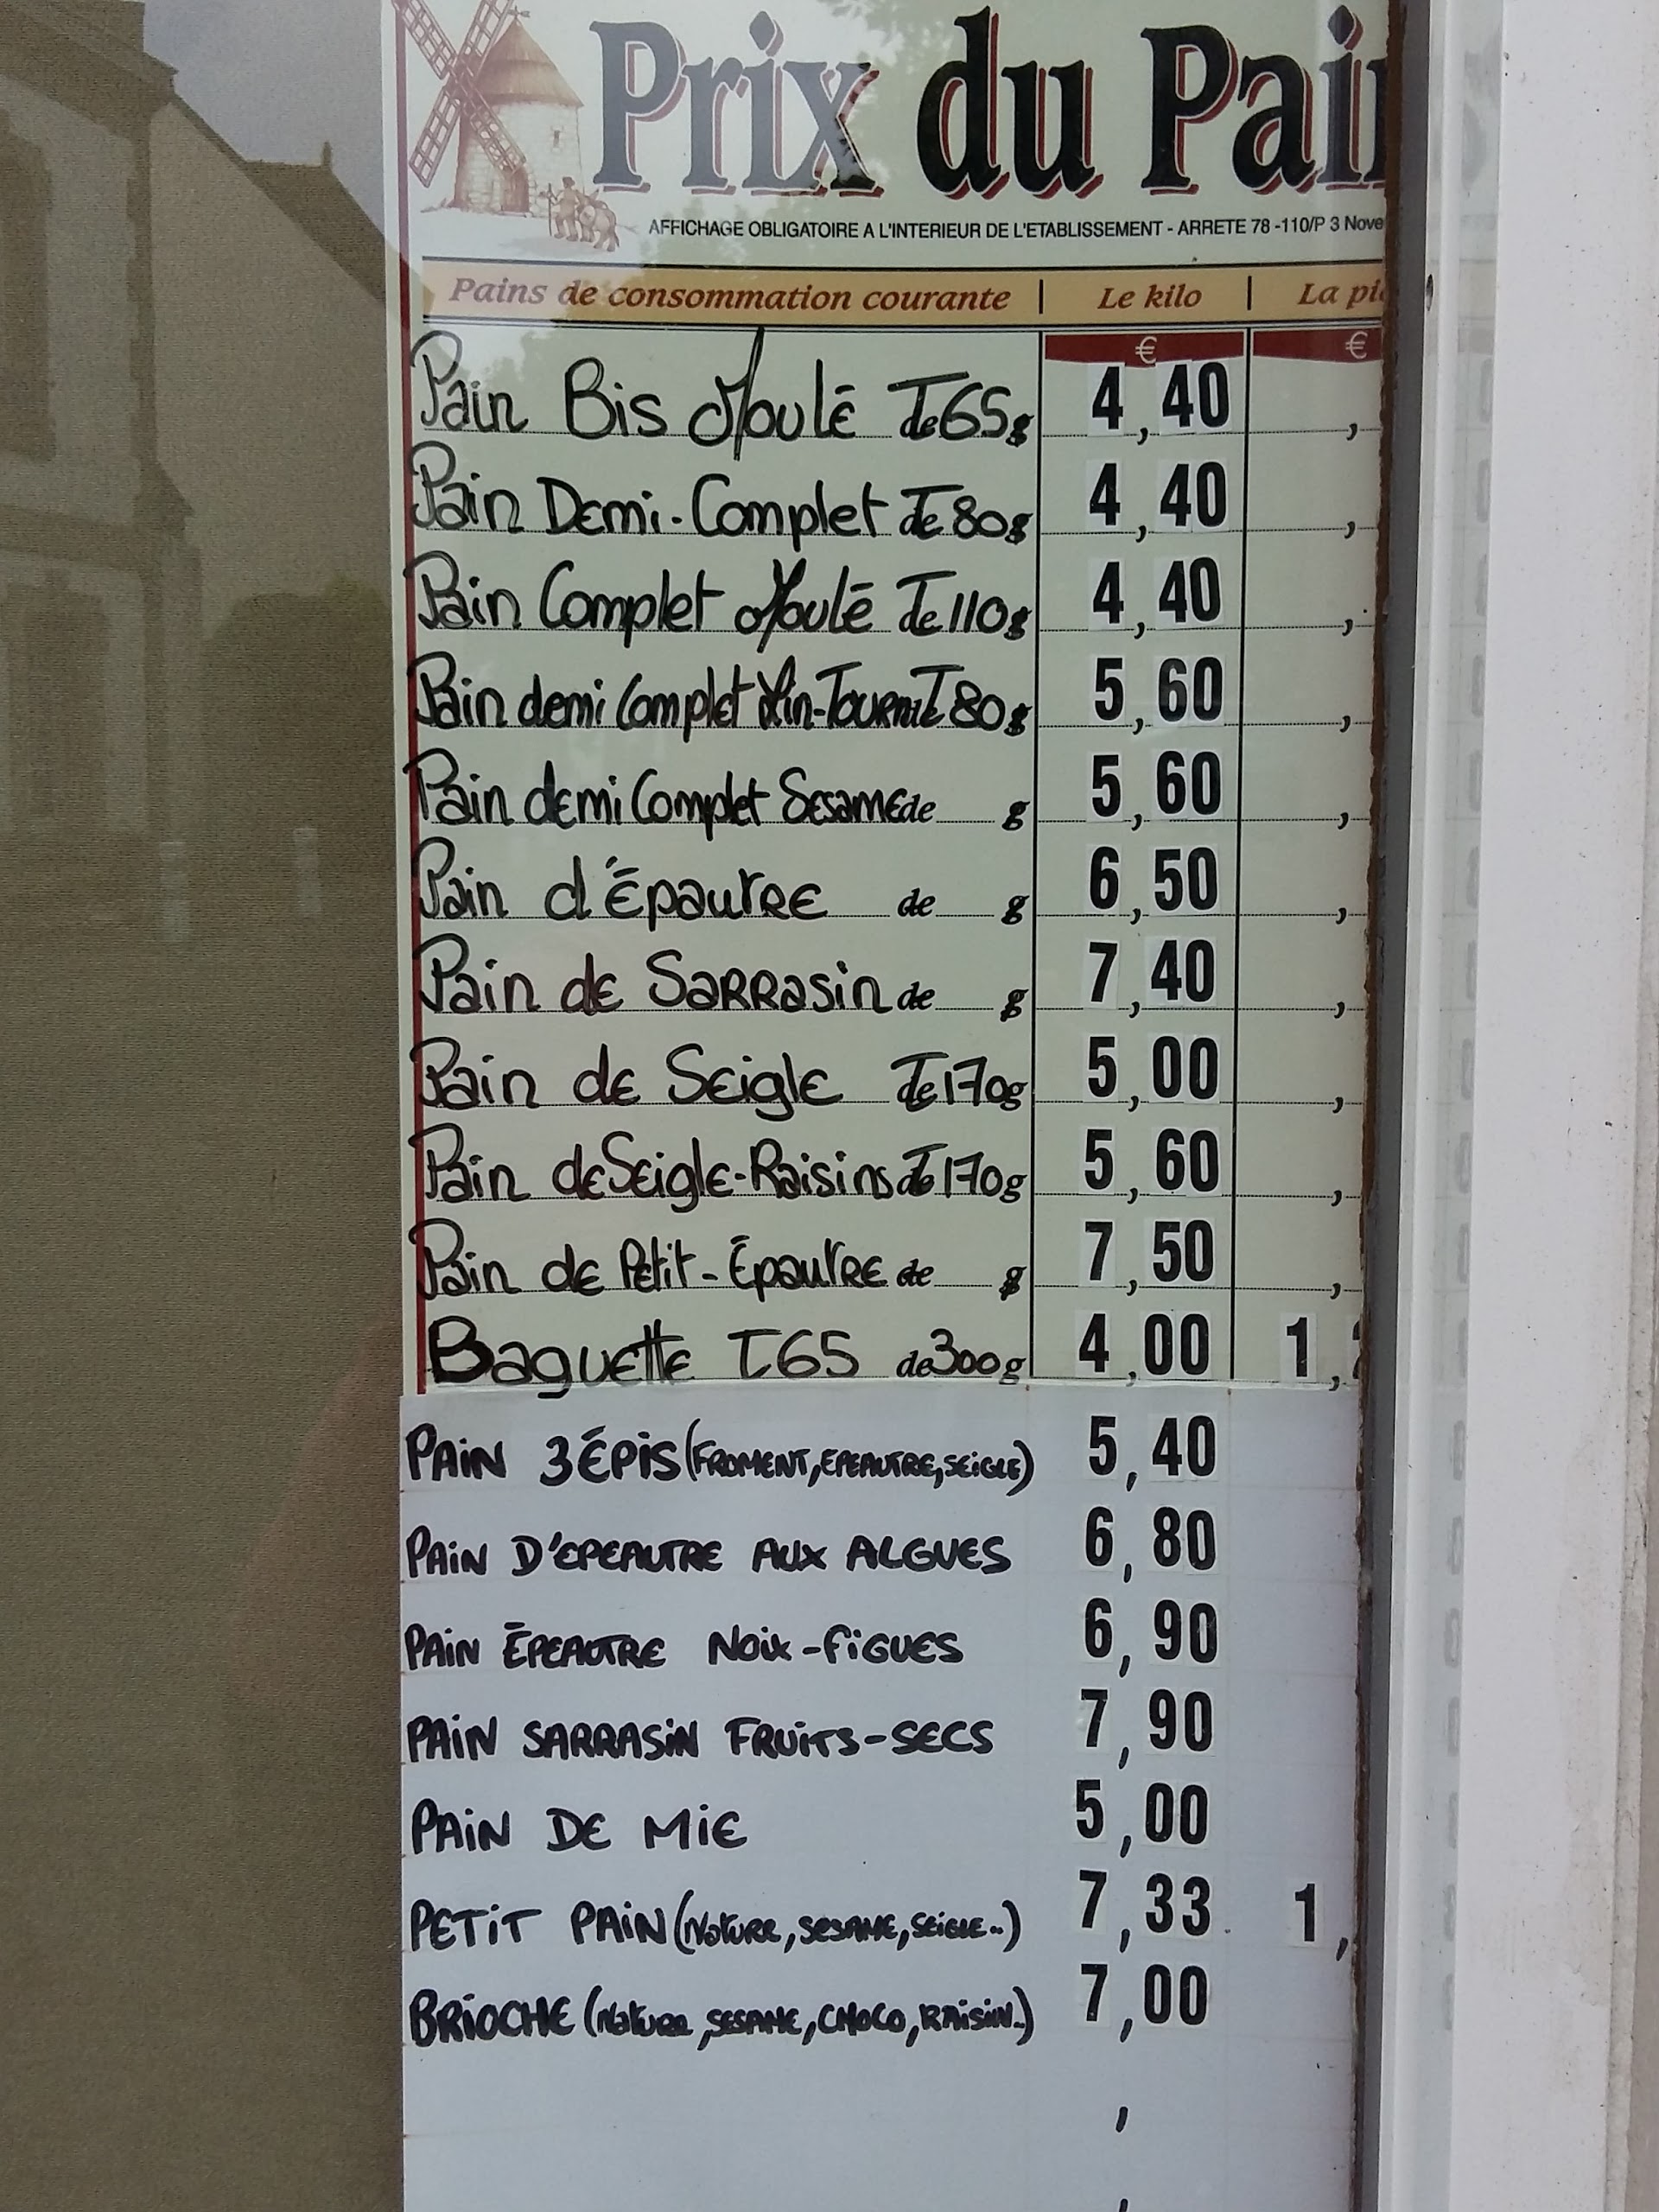 Prix du Pain
AFFICHAGE OBLIGATOIRE A L'INTERIEUR DE L'ETABLISSEMENT - ARRETE 78 -110/P 3 Nove
Pains de consommation courante Le kilo La piè
€ €
Pain Bis Moulé T de 65 g 4,40 ,
Pain Demi-Complet T de 80 g 4,40 ,
Pain Complet Moulé T de 110 g 4,40 ,
Pain demi Complet Lin-Tourne T 80 g 5,60 ,
Pain demi Complet Sesame de g 5,60 ,
Pain d'Épautre de g 6,50 ,
Pain de Sarrasin de g 7,40 ,
Pain de Seigle T de 170 g 5,00 ,
Pain de Seigle-Raisins T de 170 g 5,60 ,
Pain de Petit-Épautre de g 7,50 ,
Baguette T65 de 300 g 4,00 1,
PAIN 3 ÉPIS (FROMENT, EPEAUTRE, SEIGLE) 5,40
PAIN D'EPEAUTRE AUX ALGUES 6,80
PAIN ÉPEAUTRE NOIX-FIGUES 6,90
PAIN SARRASIN FRUITS-SECS 7,90
PAIN DE MIE 5,00
PETIT PAIN (NATURE, SESAME, SEIGLE..) 7,33 1,
BRIOCHE (NATURE, SESAME, CHOCO, RAISIN..) 7,00
,